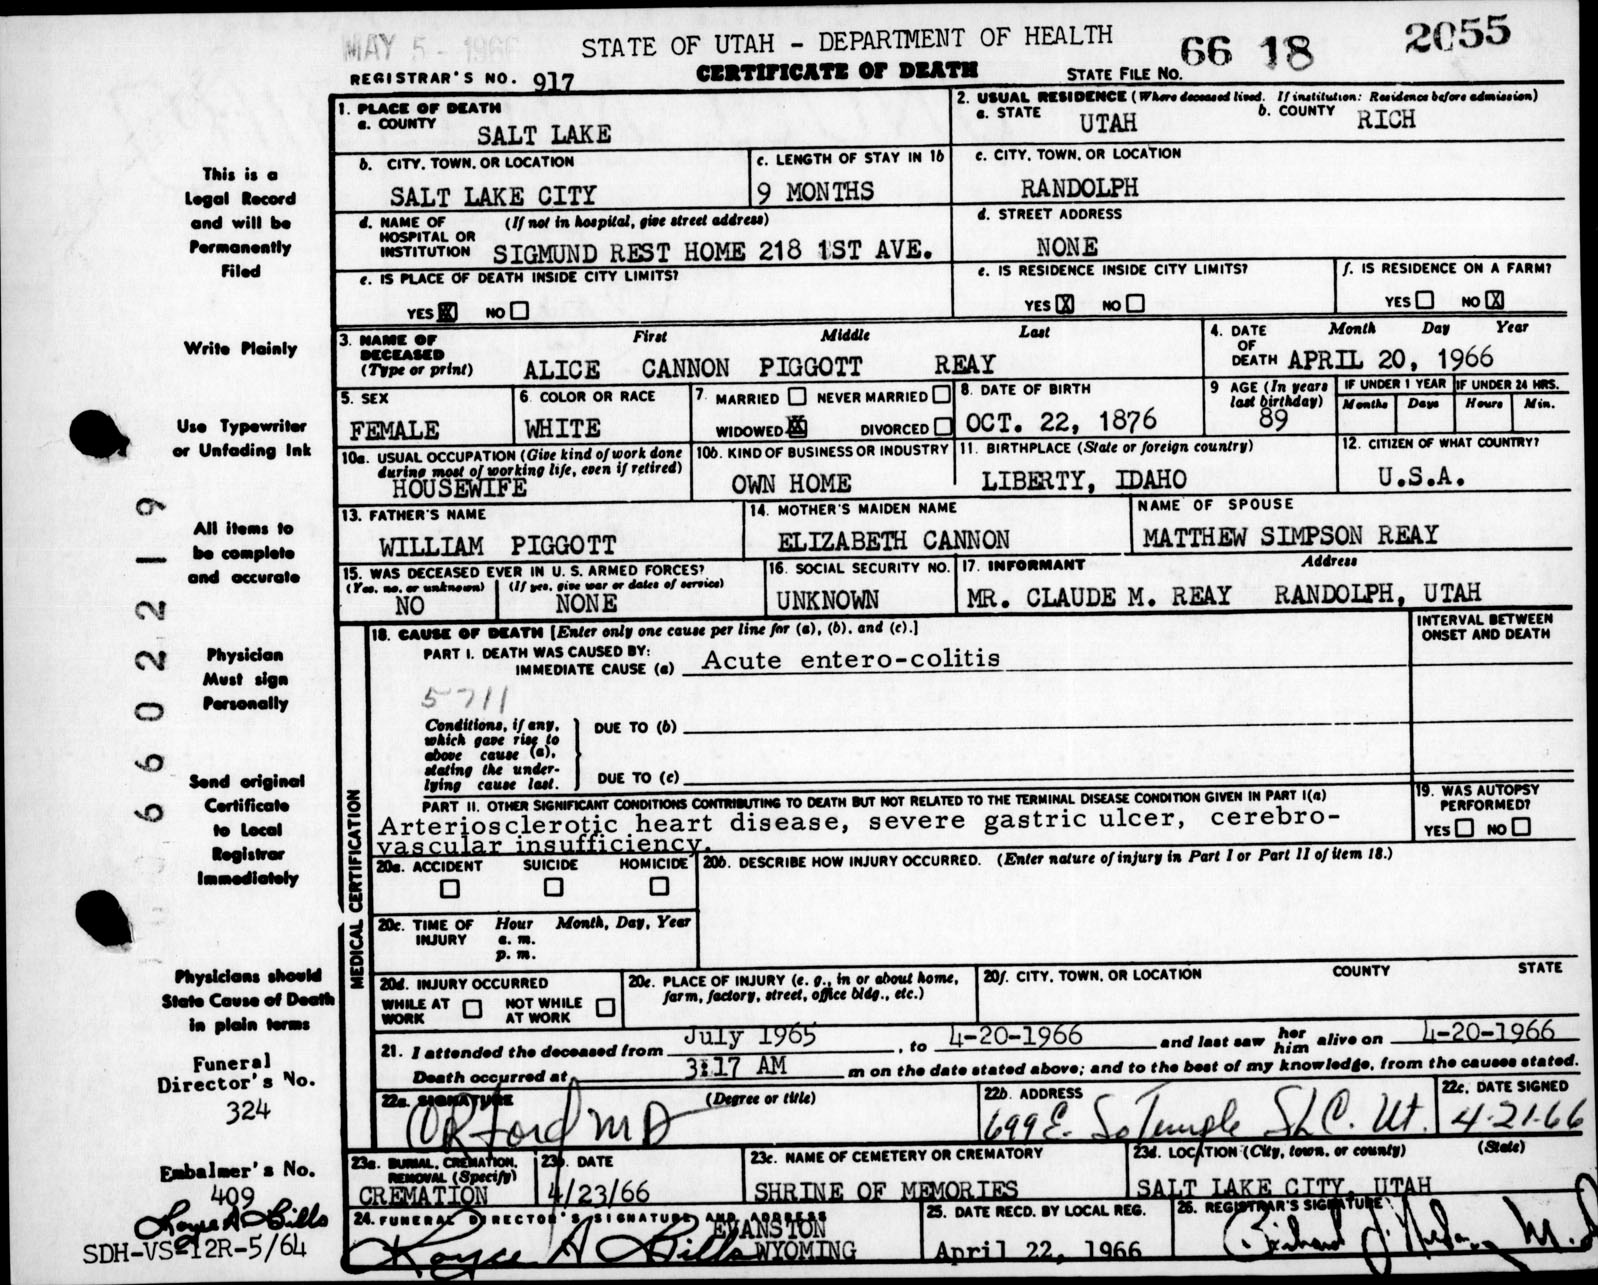 MAY 5 - 1966
STATE OF UTAH - DEPARTMENT OF HEALTH 66 18 2055
REGISTRAR'S NO. 917 CERTIFICATE OF DEATH STATE FILE NO.
1. PLACE OF DEATH
a. COUNTY SALT LAKE
2. USUAL RESIDENCE (Where deceased lived. If institution: Residence before admission)
a. STATE UTAH b. COUNTY RICH
b. CITY, TOWN, OR LOCATION SALT LAKE CITY
c. LENGTH OF STAY IN 1b 9 MONTHS
c. CITY, TOWN, OR LOCATION RANDOLPH
d. NAME OF HOSPITAL OR INSTITUTION (If not in hospital, give street address) SIGMUND REST HOME 218 1ST AVE.
d. STREET ADDRESS NONE
e. IS PLACE OF DEATH INSIDE CITY LIMITS?
YES X NO
e. IS RESIDENCE INSIDE CITY LIMITS?
YES X NO
f. IS RESIDENCE ON A FARM?
YES NO X
3. NAME OF DECEASED (Type or print) First Middle Last
ALICE CANNON PIGGOTT REAY
4. DATE OF DEATH Month Day Year
APRIL 20, 1966
5. SEX FEMALE
6. COLOR OR RACE WHITE
7. MARRIED NEVER MARRIED
WIDOWED X DIVORCED
8. DATE OF BIRTH OCT. 22, 1876
9 AGE (In years last birthday) 89
IF UNDER 1 YEAR Months Days
IF UNDER 24 HRS. Hours Min.
10a. USUAL OCCUPATION (Give kind of work done during most of working life, even if retired) HOUSEWIFE
10b. KIND OF BUSINESS OR INDUSTRY OWN HOME
11. BIRTHPLACE (State or foreign country) LIBERTY, IDAHO
12. CITIZEN OF WHAT COUNTRY? U.S.A.
13. FATHER'S NAME WILLIAM PIGGOTT
14. MOTHER'S MAIDEN NAME ELIZABETH CANNON
NAME OF SPOUSE MATTHEW SIMPSON REAY
15. WAS DECEASED EVER IN U. S. ARMED FORCES?
(Yes, no, or unknown) NO (If yes, give war or dates of service) NONE
16. SOCIAL SECURITY NO. UNKNOWN
17. INFORMANT Address
MR. CLAUDE M. REAY RANDOLPH, UTAH
MEDICAL CERTIFICATION
18. CAUSE OF DEATH [Enter only one cause per line for (a), (b), and (c).]
INTERVAL BETWEEN ONSET AND DEATH
PART I. DEATH WAS CAUSED BY:
IMMEDIATE CAUSE (a) Acute entero-colitis
5711
Conditions, if any, which gave rise to above cause (a), stating the underlying cause last.
DUE TO (b)
DUE TO (c)
PART II. OTHER SIGNIFICANT CONDITIONS CONTRIBUTING TO DEATH BUT NOT RELATED TO THE TERMINAL DISEASE CONDITION GIVEN IN PART I(a)
Arteriosclerotic heart disease, severe gastric ulcer, cerebro-
vascular insufficiency.
19. WAS AUTOPSY PERFORMED?
YES NO
20a. ACCIDENT SUICIDE HOMICIDE
20b. DESCRIBE HOW INJURY OCCURRED. (Enter nature of injury in Part I or Part II of item 18.)
20c. TIME OF INJURY Hour Month, Day, Year
a. m.
p. m.
20d. INJURY OCCURRED
WHILE AT WORK NOT WHILE AT WORK
20e. PLACE OF INJURY (e. g., in or about home, farm, factory, street, office bldg., etc.)
20f. CITY, TOWN, OR LOCATION COUNTY STATE
21. I attended the deceased from July 1965, to 4-20-1966 and last saw her him alive on 4-20-1966
Death occurred at 3:17 AM m on the date stated above; and to the best of my knowledge, from the causes stated.
22a. SIGNATURE (Degree or title)
Ford MD
22b. ADDRESS 699 E. So Temple SLC. Ut.
22c. DATE SIGNED 4-21-66
23a. BURIAL, CREMATION, REMOVAL (Specify) CREMATION
23b. DATE 4/23/66
23c. NAME OF CEMETERY OR CREMATORY SHRINE OF MEMORIES
23d. LOCATION (City, town, or county) (State)
SALT LAKE CITY, UTAH
24. FUNERAL DIRECTOR'S SIGNATURE AND ADDRESS
Royce A Bills EVANSTON WYOMING
25. DATE RECD. BY LOCAL REG. April 22, 1966
26. REGISTRAR'S SIGNATURE
This is a
Legal Record
and will be
Permanently
Filed
Write Plainly
Use Typewriter
or Unfading Ink
All items to
be complete
and accurate
Physician
Must sign
Personally
Send original
Certificate
to Local
Registrar
Immediately
Physicians should
State Cause of Death
in plain terms
Funeral
Director's No.
324
Embalmer's No.
409
Royce A Bills
SDH-VS-12R-5/64
66022219